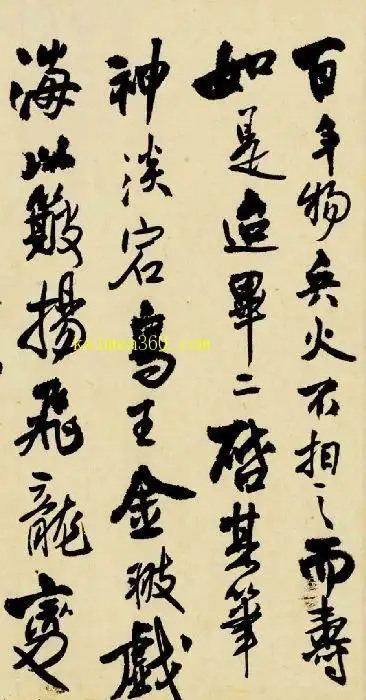 百年物兵火不相之而壽
如是迨畢二啓其筆
神淡宕鳥王金翅戲
海以簸揚飛龍變
kaimen360.com